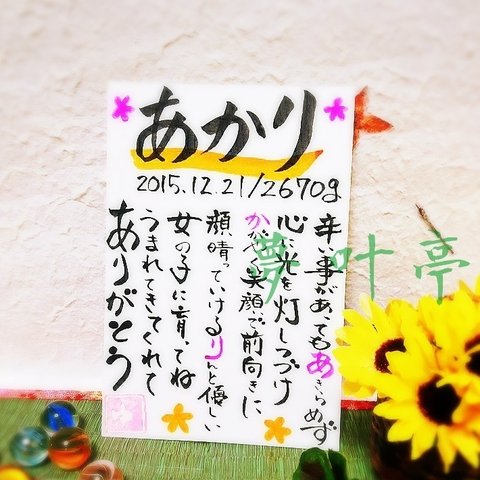 あかり
2015.12.21/2670g
辛い事があってもあきらめず
心に光を灯しつづけ
かがやく笑顔で前向きに
顔晴っていけるりんと優しい
女の子に育ってね
うまれてきてくれて
ありがとう
夢叶亭